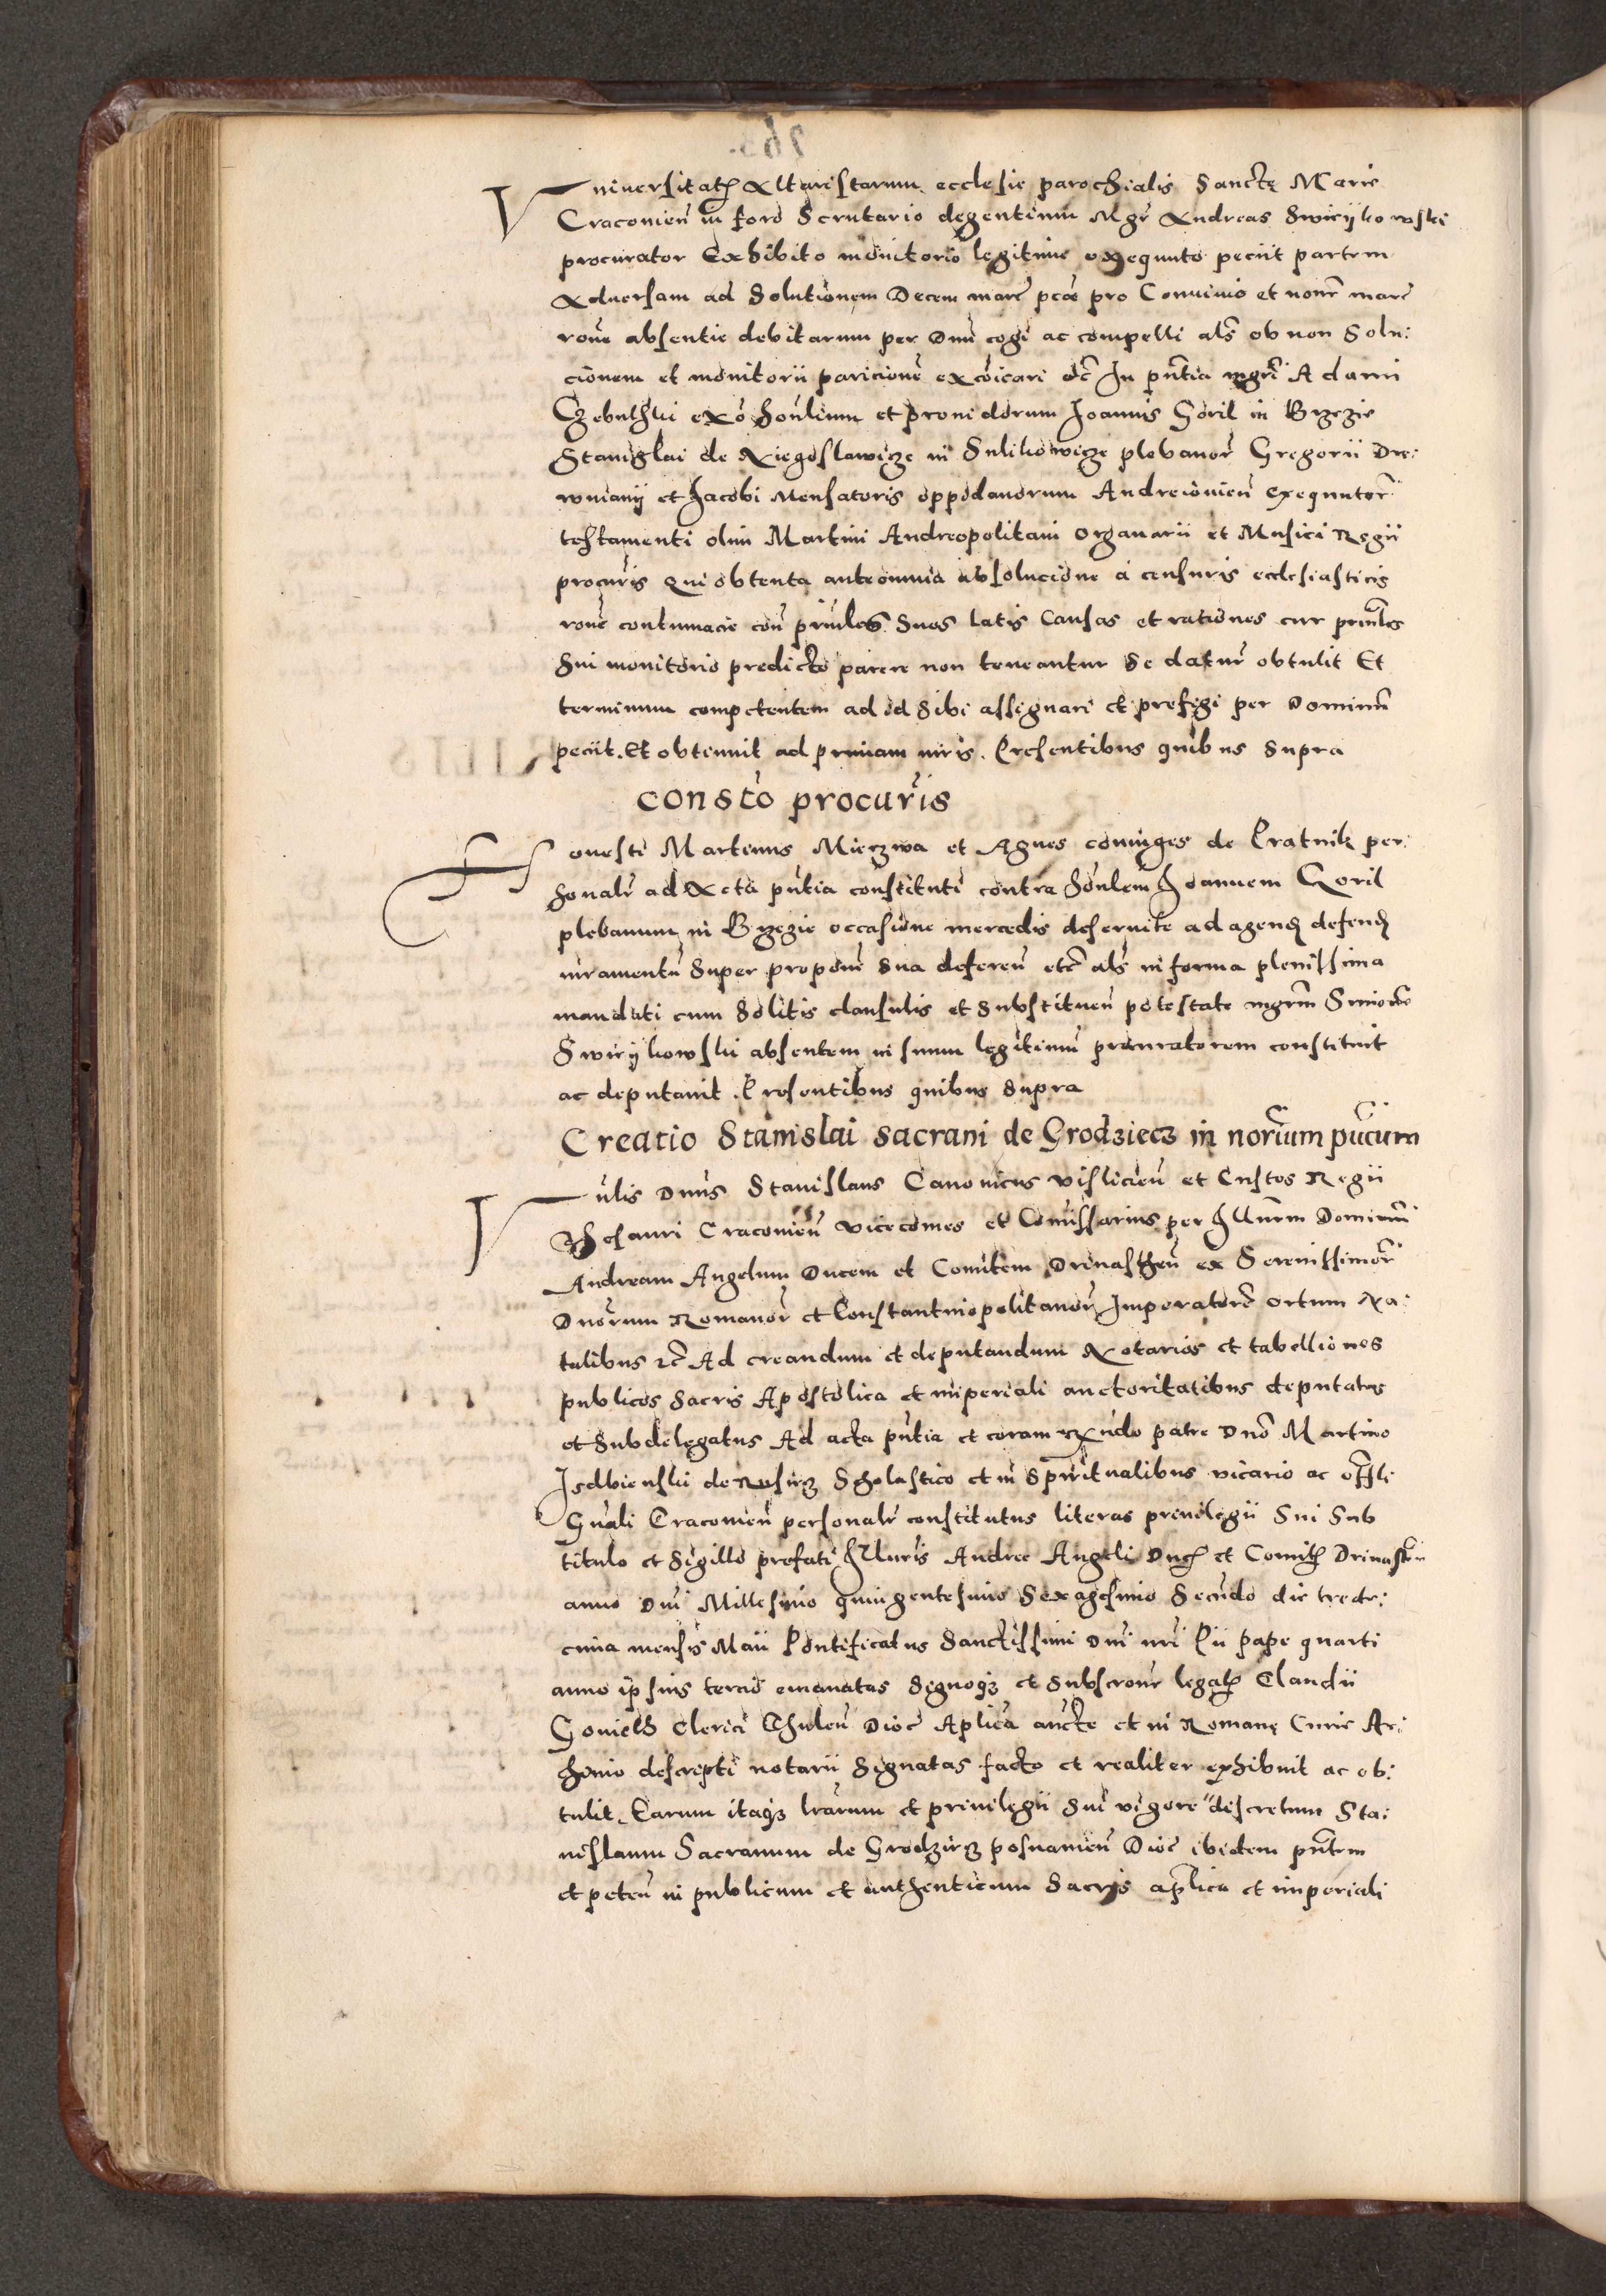 Vniuersitatis Altaristarum ecclesie parochialis Sancte Marie
Cracouien̄ in foro Scrutario degentium Mgr̄ Andreas Swirykowski
procurator Exhibito monitorio legitime exequuto peciit partem
Aduersam ad Solutionem Decem marc̄ pec̄ pro Conuiuio et nonē marc̄
rone absentie debitarum per Dnū cogi ac compelli als̄ ob non Solu:
cionem et monitorii paricione exc̄oicari etc̄ In pn̄tia mgri Adami
Czebulski exō hon̄lium et prouidorum Joannis Goril in Brzezie
Stanislai de Xiegoslawicze in Sulikowicze plebanor̄ Gregorii Dre:
wniany et Jacobi Mensatoris oppidanorum Andreiouien̄ exequutor̄
testamenti olim Martini Andreopolitani Organarii et Musici Regii
procur̄is Qui obtenta ante omnia absolucione a censuris ecclesiasticis
rone contumacie con̄ prin̄les suos latis Causas et rationes cur prin̄les
Sui monitorio predicto parere non teneantur Se datur̄ obtulit Et
terminum competentem ad id Sibi assignari et prefigi per Dominū
peciit. Et obtinuit ad primam iuris. Presentibus quibus Supra
Consto procur̄is
Honesti Martinus Mierzwa et Agnes coniuges de Pratnik per:
sonalr̄ ad Acta pn̄tia constituti contra hon̄lem Joannem Goril
plebanum in Brzezie occasione mercedis deseruite ad agend̄ defend̄
iuramentū Super proponē Sua deferen̄ etc̄ als̄ in forma plenissima
mandati cum Solitis clausulis et Substituen̄ potestate mgrm̄ Simonē
Swirykowski absentem in suum legitimū procuratorem constituit
ac deputauit. Presentibus quibus Supra
Creatio Stanislai Sacrani de Grodziecz in nor̄ium pu̅cum
Vn̄lis Dnūs Stanislaus Canonicus Vislicien̄ et Custos Regii
Thesauri Cracouien̄ vicecomes et Com̄issarius per Illrm̄ Dominū
Andream Angelum Ducem et Comitem Driuasten̄ ex Serenissimor̄
Dnōrum Romanor̄ et Constantinopolitanor̄ Imperator̄ ortum Na:
talibus etc̄ Ad creandum et deputandum Notarios et tabelliones
publicos Sacris Apostolica et imperiali auctoritatibus deputatus
et Subdelegatus Ad acta pn̄tia et coram Rn̄do patre Dnō Martino
Isdbienski de Rusiecz Scholastico et in Spiritualibus vicario ac offli
Gn̄ali Cracouien̄ personalr̄ constitutus literas priuilegii Sui Sub
titulo et Sigillo prefati Illuris Andree Angeli Ducis et Comitis Driuasten̄
anno Dnī Millesimo quingentesimo Sexagesimo Secundo die trede:
cima mensis Maii Pontificatus Sanctissimi Dnī nrī Pii pape quarti
anno ipsius tercio emanatas Signoq; et Subscronē legalis Claudii
Clerici Dioc̄ Aplica aucte et in Romane Curie Ar:
chiuio descripti notarii Signatas facto et realiter exhibuit ac ob:
tulit. Earum itaq; lrarum et priuilegii Sui vigore discretum Sta:
nislaum Sacranum de Grodziecz posnanien̄ Dioc̄ ibidem pn̄tem
et peten̄ in publicum et authenticum Sacris aplica et imperiali